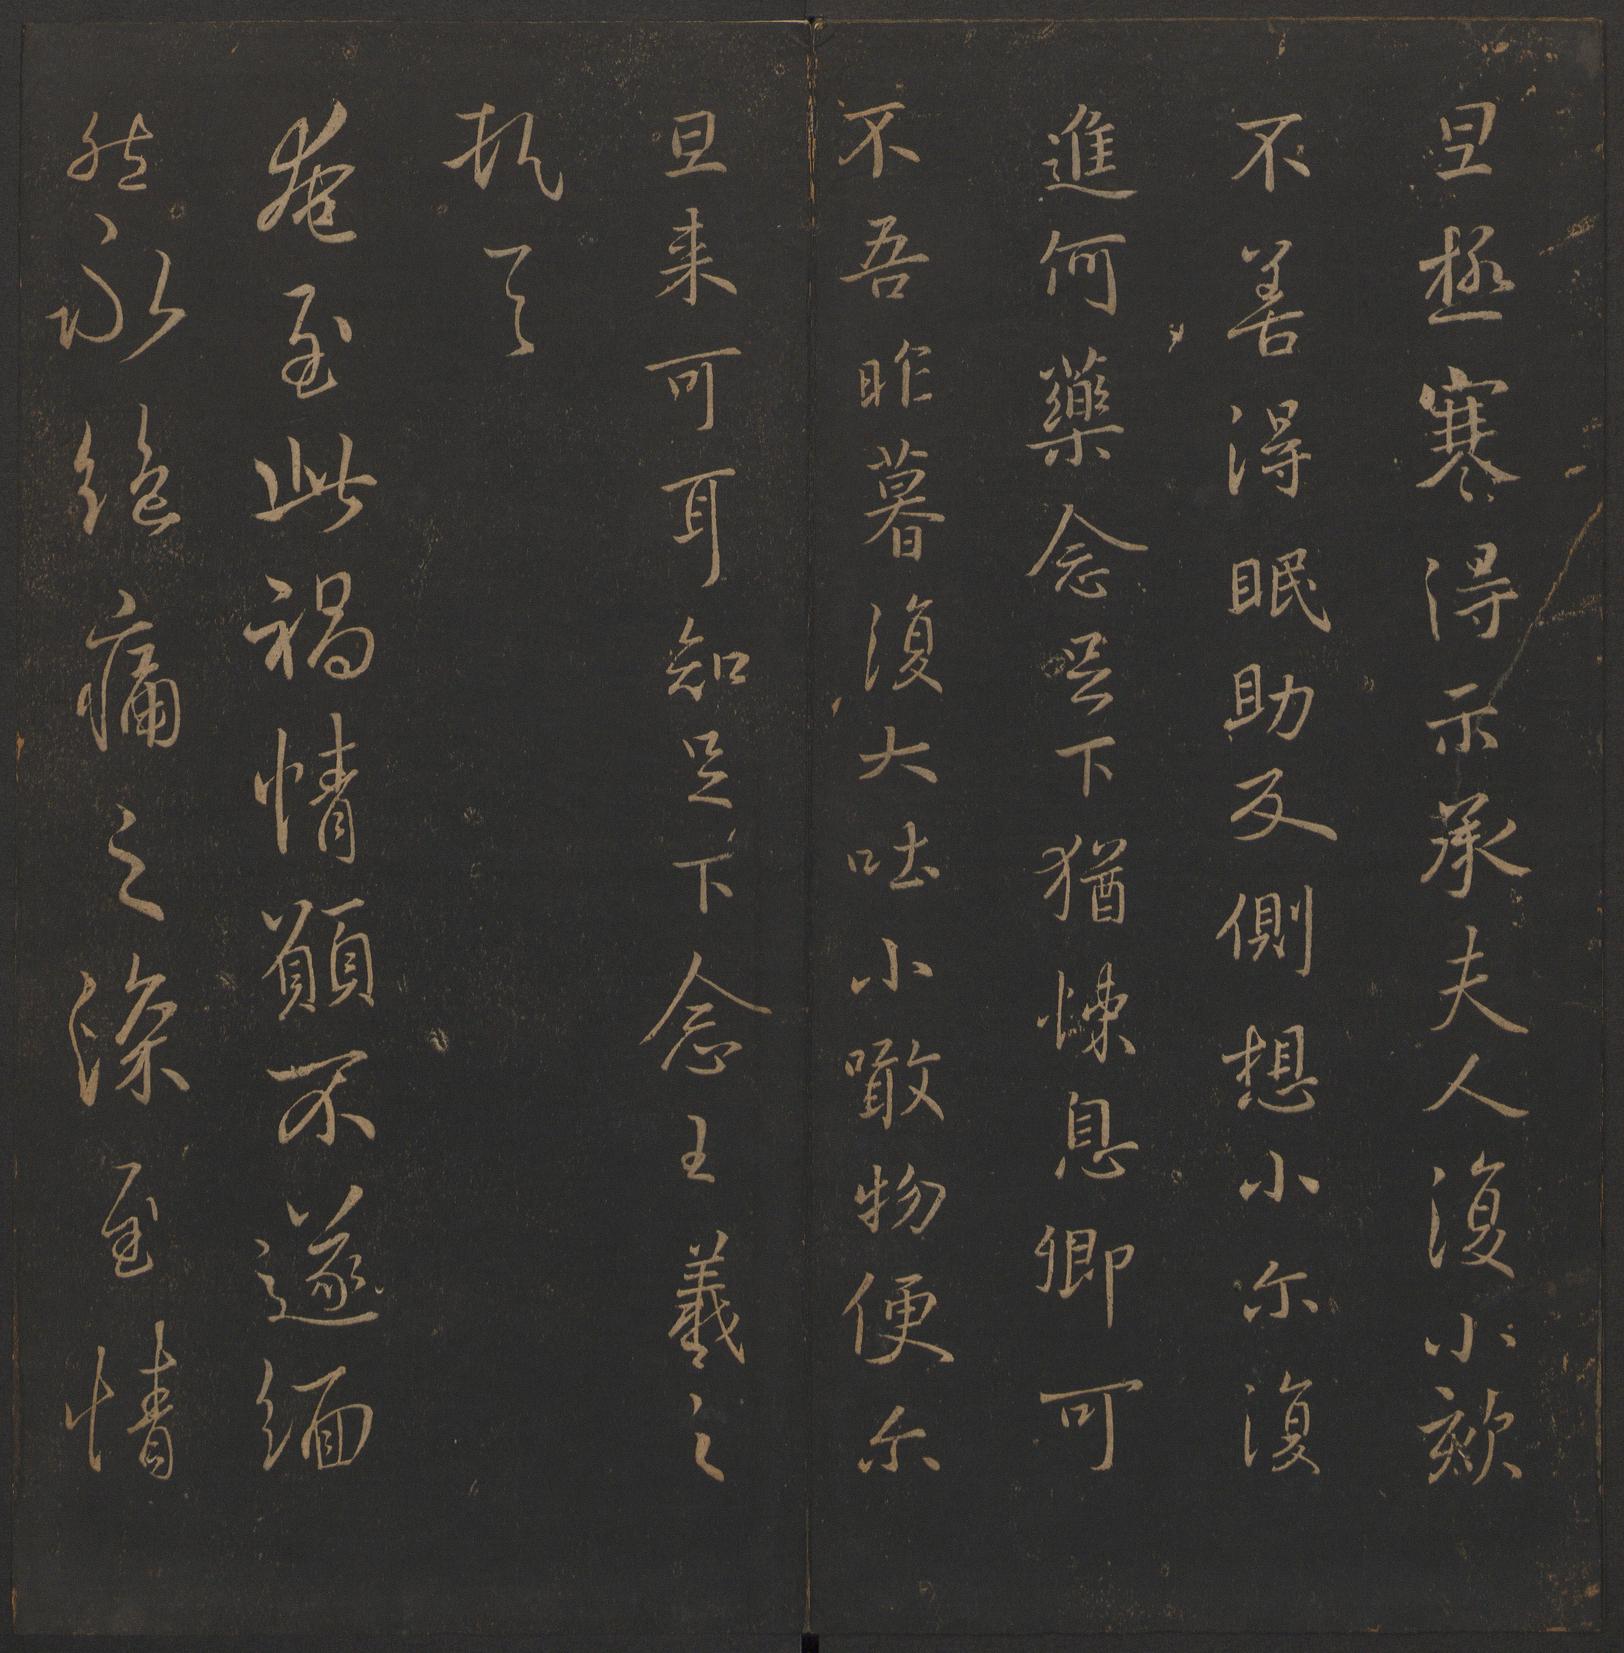 旦極寒得示承夫人復小欬
不善得眠助反側想小尔復
進何藥念足下猶悚息卿可
不吾昨暮復大吐小噉物便尔
旦来可耳知足下念王羲之
頓首
奄至此禍情願不遂緬
然永絶痛之深至情